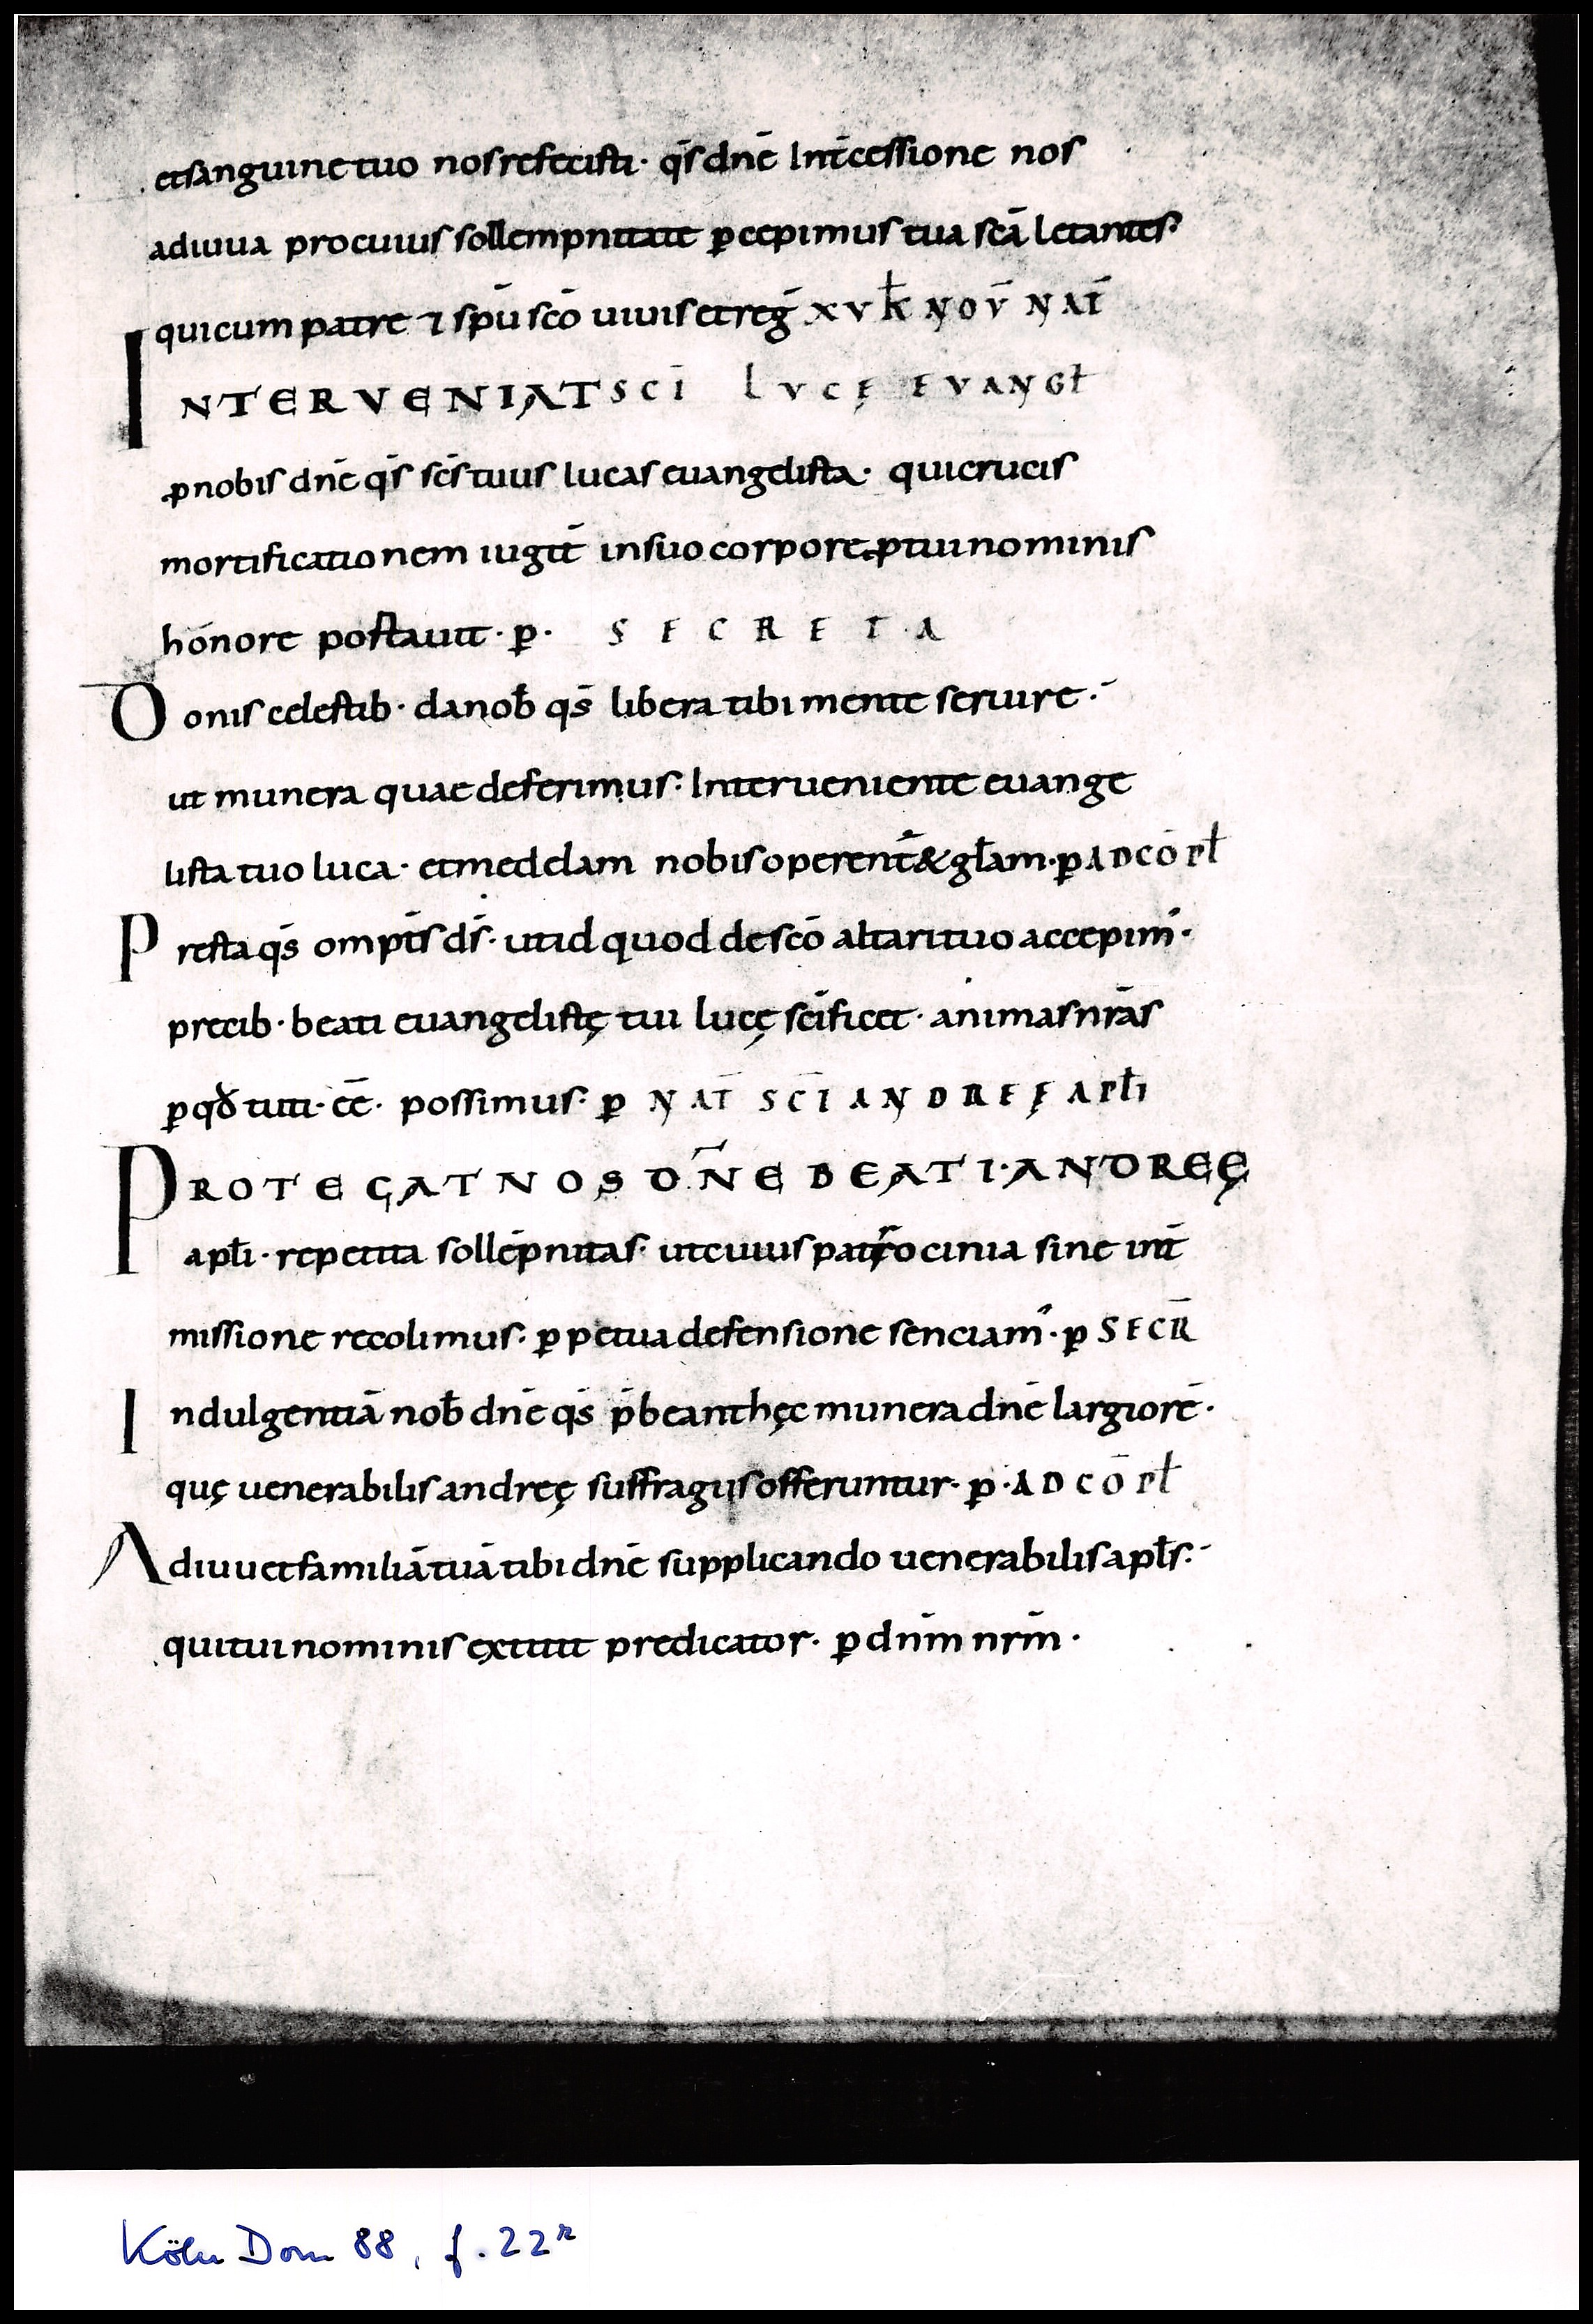 et sanguine tuo nos refecisti· qs̄ dnē Int̄cessione nos
adiuua pro cuius sollempnitate ꝑcepimus tua scā letantes·
qui cum patre ⁊ spū scō uiuis et reḡ XV K̄ NOV̄ NAT̄
INTERVENIAT SCI̅ LVCĘ EVANGŁ
ꝓ nobis dnē qs̄ scs̄ tuus lucas euangelista· qui crucis
mortificationem iugit̄ in suo corpore· ꝓ tui nominis
honore postauit· ꝑ· SECRETA
Donis celestib· da nob̄ qs̄ libera tibi mente seruire·
ut munera quae deferimus· Interueniente euange
lista tuo luca· et medelam nobis operent̄ & gl̄am· ꝑ AD CŌPŁ
Presta qs̄ ompt̄s ds̄· ut id quod de scō altari tuo accepim̄·
precib· beati euangelistę tui lucę scīficet· animas nrās
ꝑ qđ tuti· eē· possimus· ꝑ NAT̄ SCI̅ ANDREĘ APŁI
PROTEGAT NOS DN̄E BEATI· ANDREĘ
apłi· repetita sollēpnitas· ut cuius patrocinia sine int̄
missione recolimus· ꝑpetua defensione senciam̄· ꝑ SECR̄
Indulgentiā nob̄ dnē qs̄ p̄beant hęc munera dnē largiorē·
quę uenerabilis andreę suffragiis offeruntur· ꝑ· AD CŌPŁ
Adiuuet familiā tuā tibi dnē supplicando uenerabilis apłs·
qui tui nominis extitit predicator· ꝑ dnm̄ nrm̄·
Köln Dom 88, f. 22r